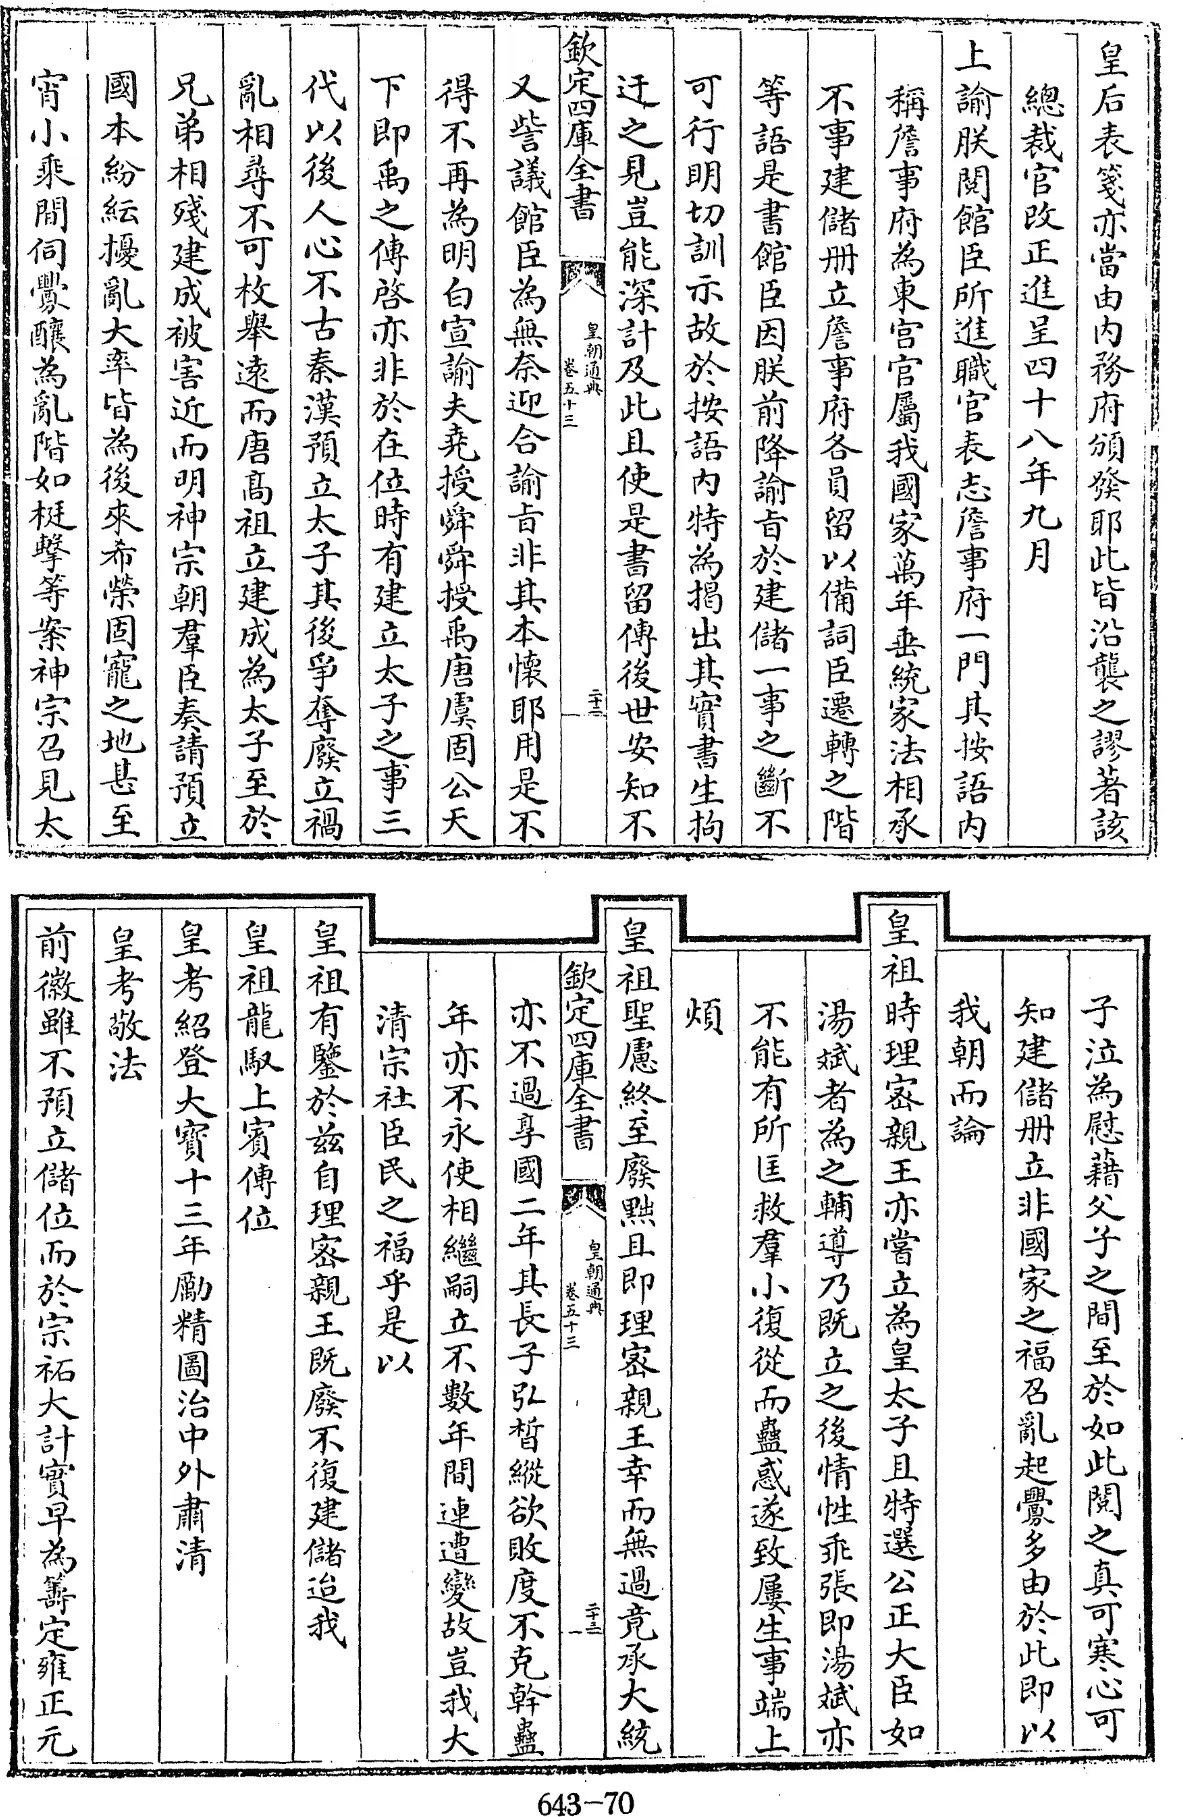 皇后表箋亦當由內務府頒發耶此皆沿襲之謬著該
總裁官改正進呈四十八年九月
上諭朕閱館臣所進職官表志詹事府一門其按語內
稱詹事府為東宮官屬我國家萬年垂統家法相承
不事建儲册立詹事府各員留以備詞臣遷轉之階
等語是書館臣因朕前降諭旨於建儲一事之斷不
可行明切訓示故於按語內特為揭出其實書生拘
迂之見豈能深計及此且使是書留傳後世安知不
欽定四庫全書
皇朝通典
卷五十三
二十二
又訾議館臣為無奈迎合諭旨非其本懷耶用是不
得不再為明白宣諭夫堯授舜舜授禹唐虞固公天
下即禹之傳啓亦非於在位時有建立太子之事三
代以後人心不古秦漢預立太子其後爭奪廢立禍
亂相尋不可枚舉遠而唐高祖立建成為太子至於
兄弟相殘建成被害近而明神宗朝羣臣奏請預立
國本紛紜擾亂大率皆為後來希榮固寵之地甚至
宵小乘間伺釁釀為亂階如梃擊等案神宗召見太
子泣為慰藉父子之間至於如此閱之真可寒心可
知建儲册立非國家之福召亂起釁多由於此即以
我朝而論
皇祖時理密親王亦嘗立為皇太子且特選公正大臣如
湯斌者為之輔導乃既立之後情性乖張即湯斌亦
不能有所匡救羣小復從而蠱惑遂致屢生事端上
煩
皇祖聖慮終至廢黜且即理密親王幸而無過竟承大統
欽定四庫全書
皇朝通典
卷五十三
二十三
亦不過享國二年其長子弘晳縱欲敗度不克幹蠱
年亦不永使相繼嗣立不數年間連遭變故豈我大
清宗社臣民之福乎是以
皇祖有鑒於茲自理密親王既廢不復建儲迨我
皇祖龍馭上賓傳位
皇考紹登大寶十三年勵精圖治中外肅清
皇考敬法
前徽雖不預立儲位而於宗祏大計實早為籌定雍正元
643-70